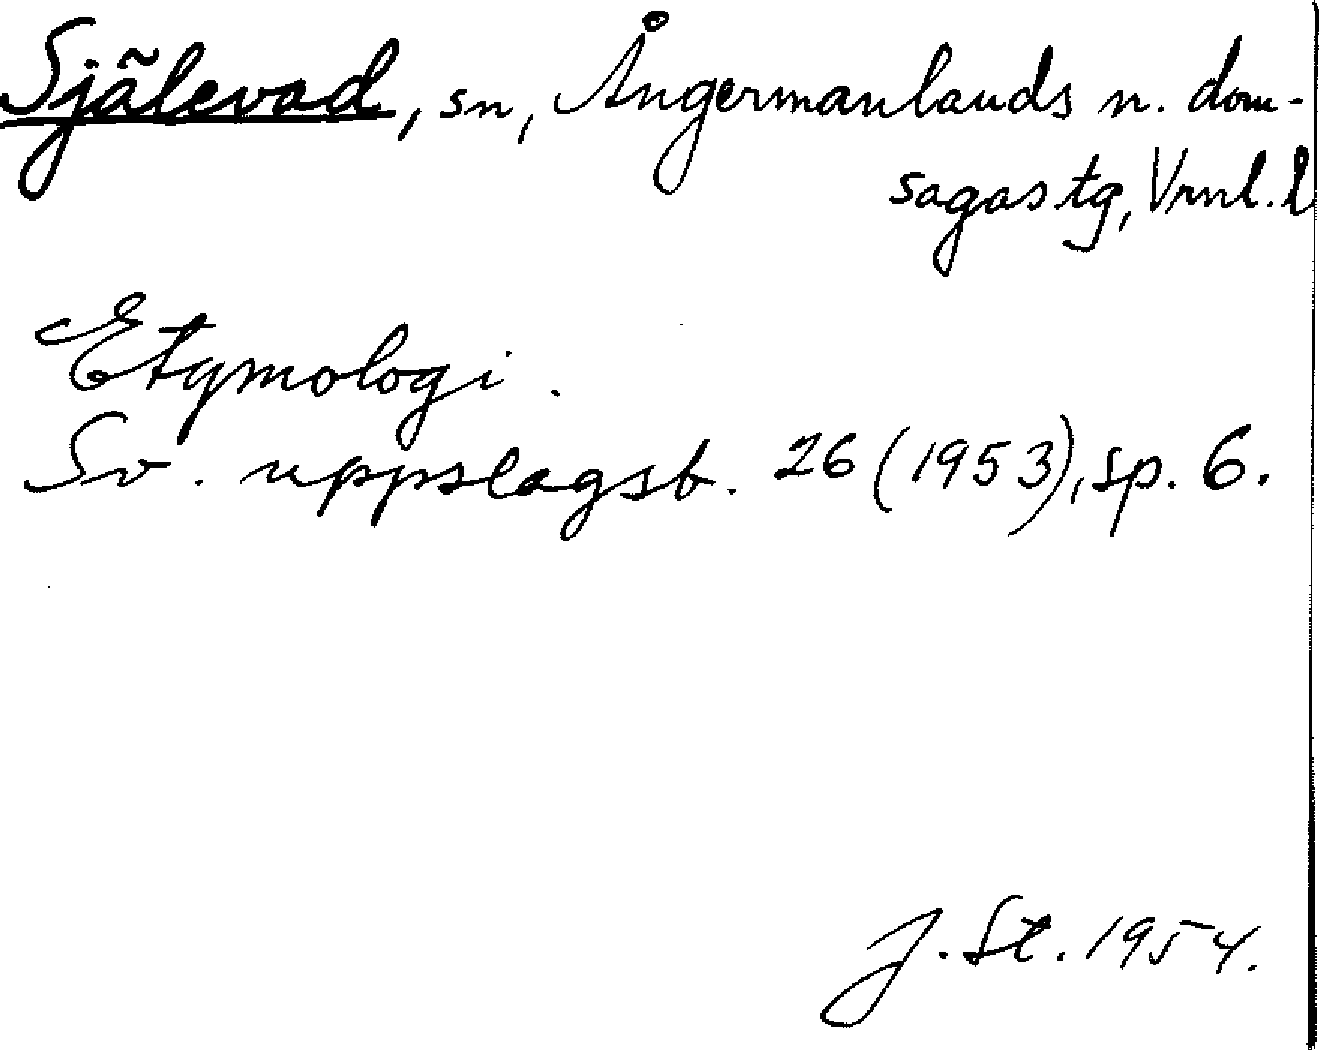 Själevad, sn, Ångermanlands n. dom-
sagas tg, Vrnl. l
Etymologi.
Sv. uppslagsb. 26 (1953), sp. 6.
J. St. 1954.